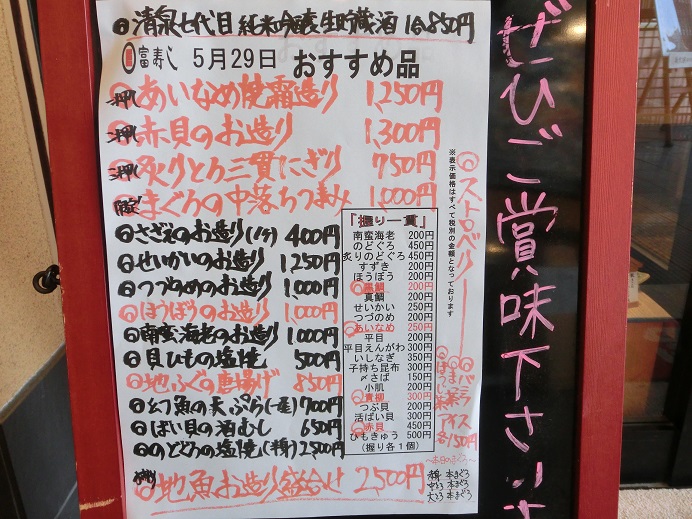 清泉七代目 純米吟醸生貯蔵酒 1合850円
富寿し 5月29日 おすすめ品
一押し あいなめ焼霜造り 1,250円
一押し 赤貝のお造り 1,300円
一押し 炙りとろ三貫にぎり 750円
限定 まぐろの中落ちつまみ 1,000円
さざえのお造り(1ケ) 400円
せいかいのお造り 1,250円
つづめのお造り 1,000円
ほうぼうのお造り 1,000円
南蛮海老のお造り 1,000円
貝ひもの塩焼 500円
地ふぐの唐揚げ 850円
幻魚の天ぷら(一尾) 700円
ばい貝の酒むし 650円
のどぐろの塩焼(一尾) 2,500円
地魚お造り盛合せ 2,500円
「握り一貫」
南蛮海老 200円
のどぐろ 450円
炙りのどぐろ 450円
すずき 200円
ほうぼう 200円
黒鯛 200円
真鯛 200円
せいかい 250円
つづのめ 200円
あいなめ 250円
平目 200円
平目えんがわ 300円
いしなぎ 350円
子持ち昆布 300円
〆さば 150円
小肌 200円
青柳 300円
つぶ貝 200円
活ばい貝 300円
赤貝 450円
ひもきゅう 500円
(握り各1個)
※表示価格はすべて税別の金額となっております
ストロベリー
バニラ
ごま
ほうじ茶
アイス
各150円
〜本日のまぐろ〜
赤身 本まぐろ
中とろ 本まぐろ
大とろ 本まぐろ
ぜひご賞味下さいませ